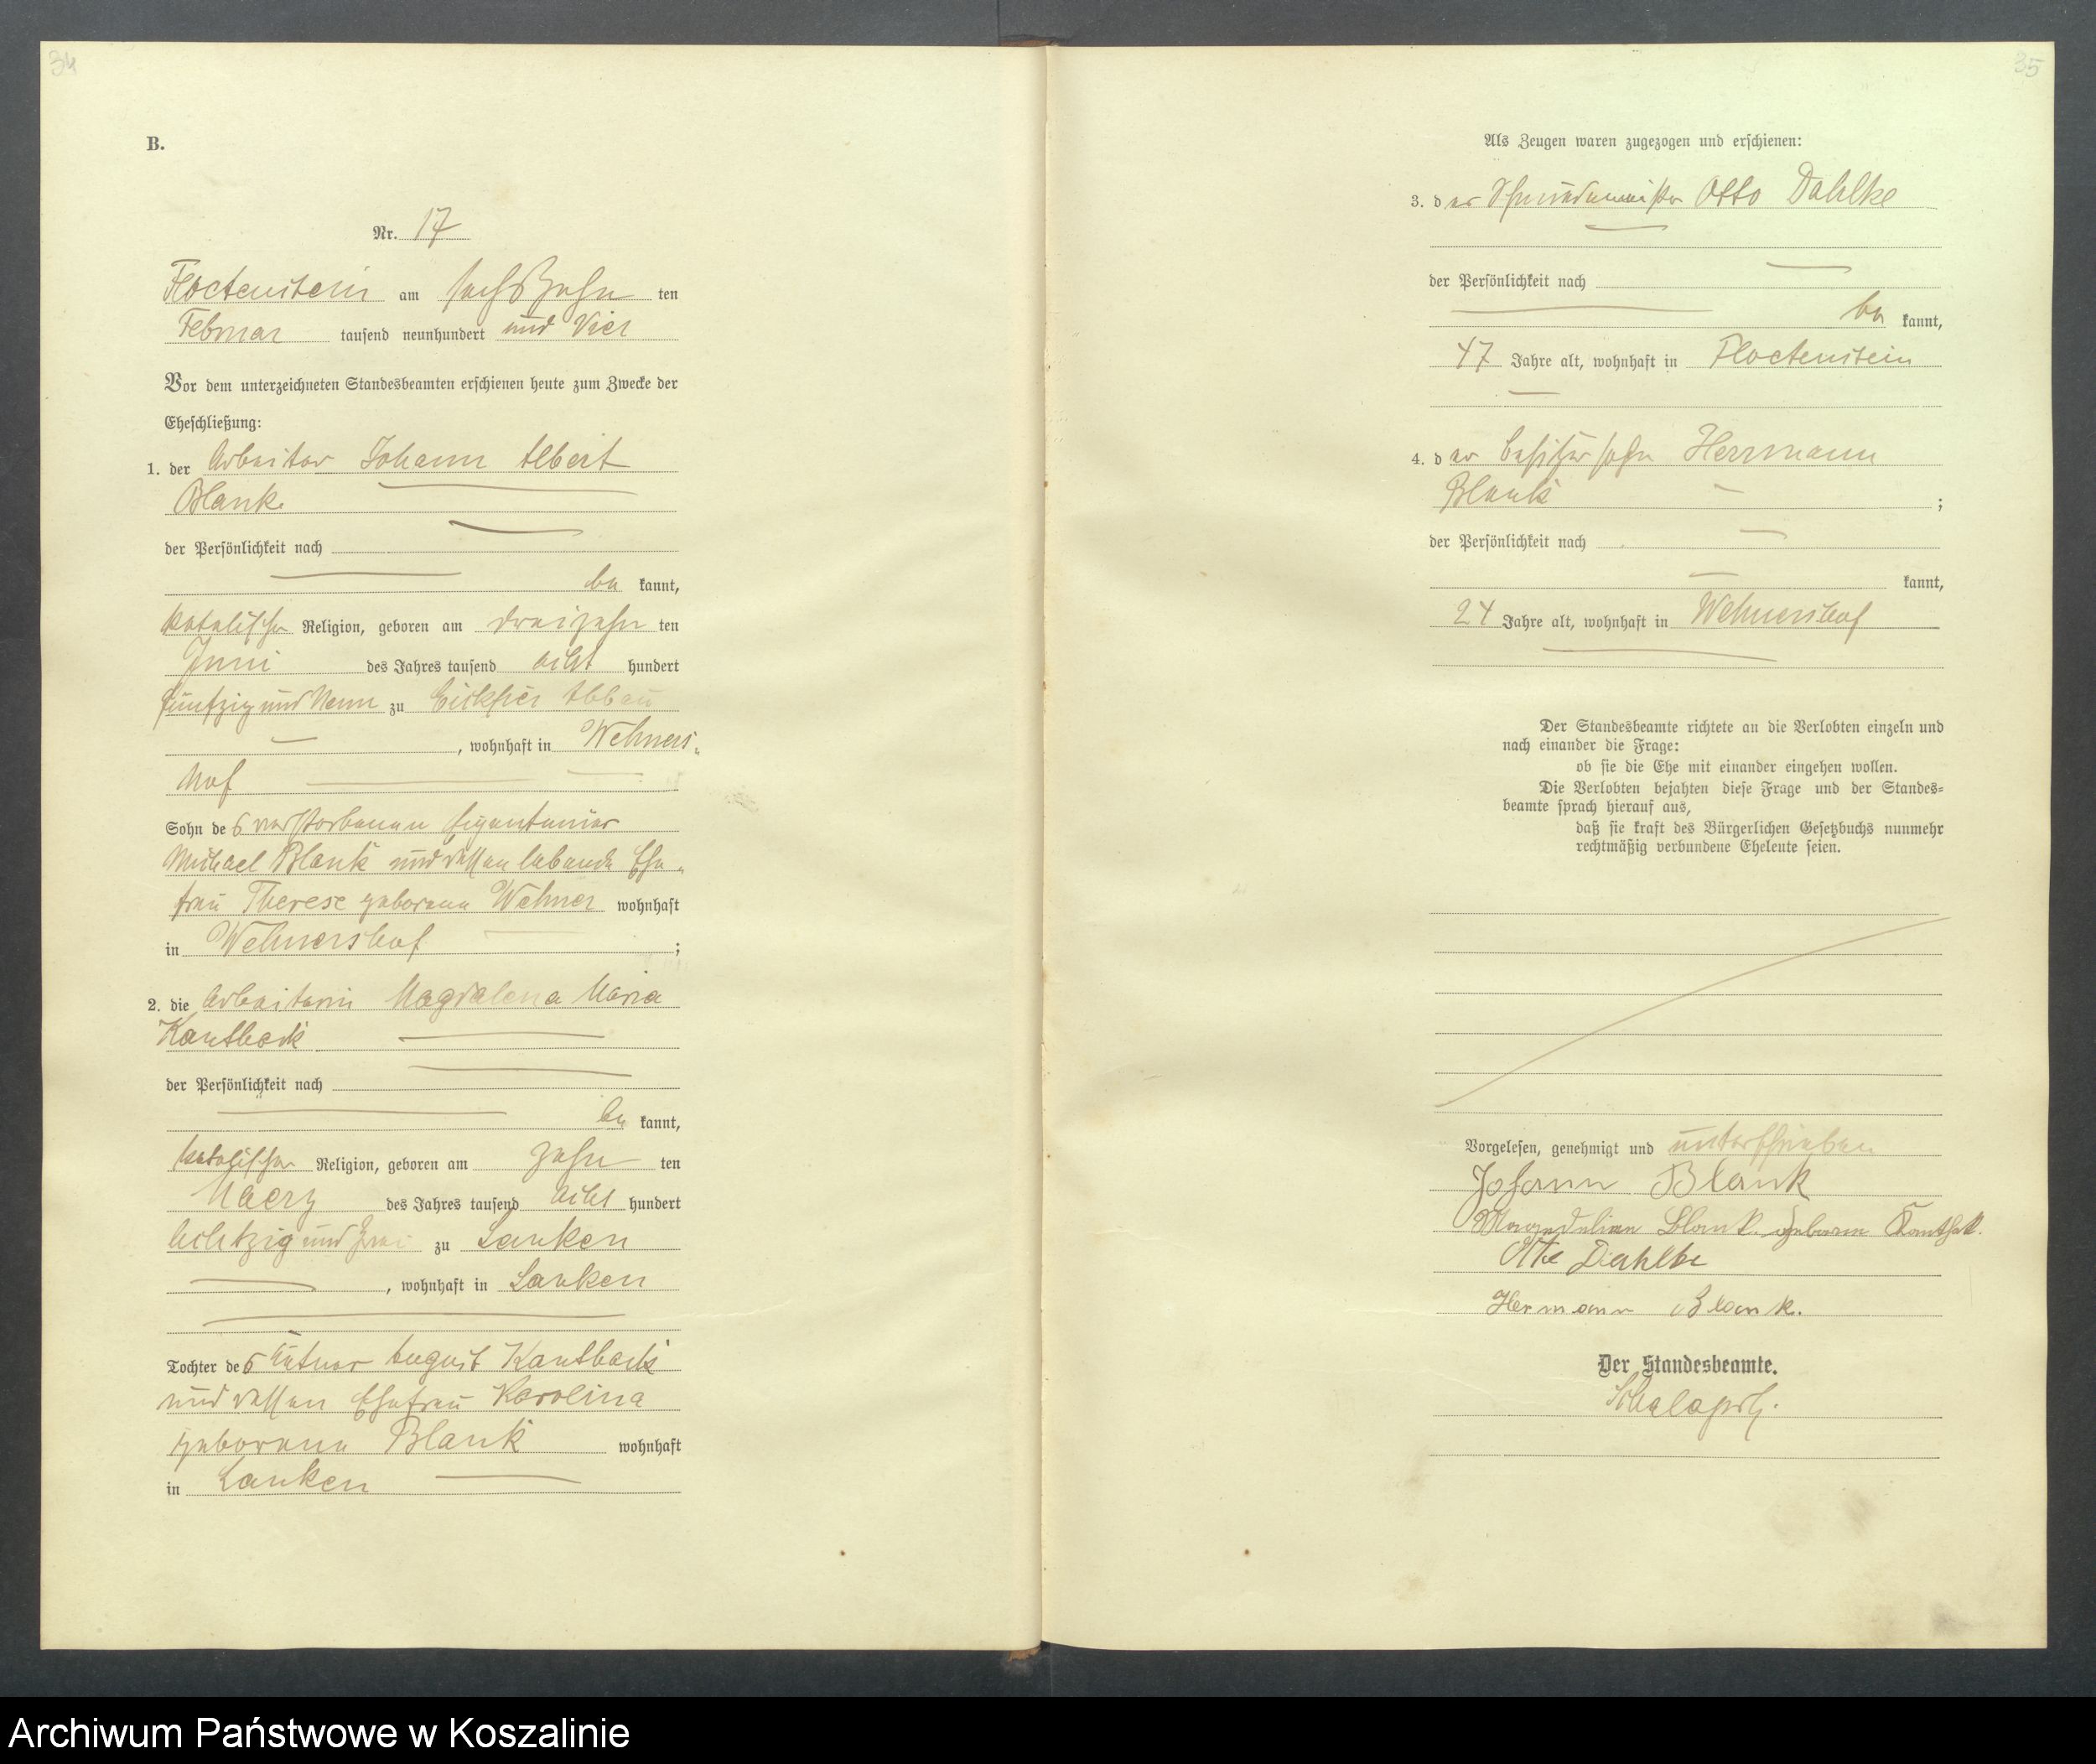 34
B.
Nr. 17
Floetenstein am sechszehn ten
Februar tausend neunhundert und Vier
Vor dem unterzeichneten Standesbeamten erschienen heute zum Zwecke der
Eheschließung:
1. der Arbeiter Johann Albert
Blank
der Persönlichkeit nach
be kannt,
katolischer Religion, geboren am dreizehn ten
Juni des Jahres tausend acht hundert
fünfzig und Neun zu Eickfier Abbau
, wohnhaft in Wehners-
hof
Sohn des verstorbenen Eigentümer
Michael Blank und dessen lebende Ehe-
frau Therese geborene Wehner wohnhaft
in Wehnershof ;
2. die Arbeiterin Magdalena Maria
Kanthack
der Persönlichkeit nach
be kannt,
katolischer Religion, geboren am zehn ten
Maerz des Jahres tausend acht hundert
achtzig und Zwei zu Lanken
, wohnhaft in Lanken
Tochter des August Kanthack
und dessen Ehefrau Karolina
geborene Blank wohnhaft
in Lanken
35
Als Zeugen waren zugezogen und erschienen:
3. der Otto Dahlke
der Persönlichkeit nach
be kannt,
47 Jahre alt, wohnhaft in Floetenstein
4. der Besitzersohn Herrmann
Blank ;
der Persönlichkeit nach
kannt,
24 Jahre alt, wohnhaft in Wehnershof
Der Standesbeamte richtete an die Verlobten einzeln und
nach einander die Frage:
ob sie die Ehe mit einander eingehen wollen.
Die Verlobten bejahten diese Frage und der Standes-
beamte sprach hierauf aus,
daß sie kraft des Bürgerlichen Gesetzbuchs nunmehr
rechtmäßig verbundene Eheleute seien.
Vorgelesen, genehmigt und unterschrieben
Johann Blank
Blank geborne
Otto Dahlke
Hermann Blank.
Der Standesbeamte.
Archiwum Państwowe w Koszalinie